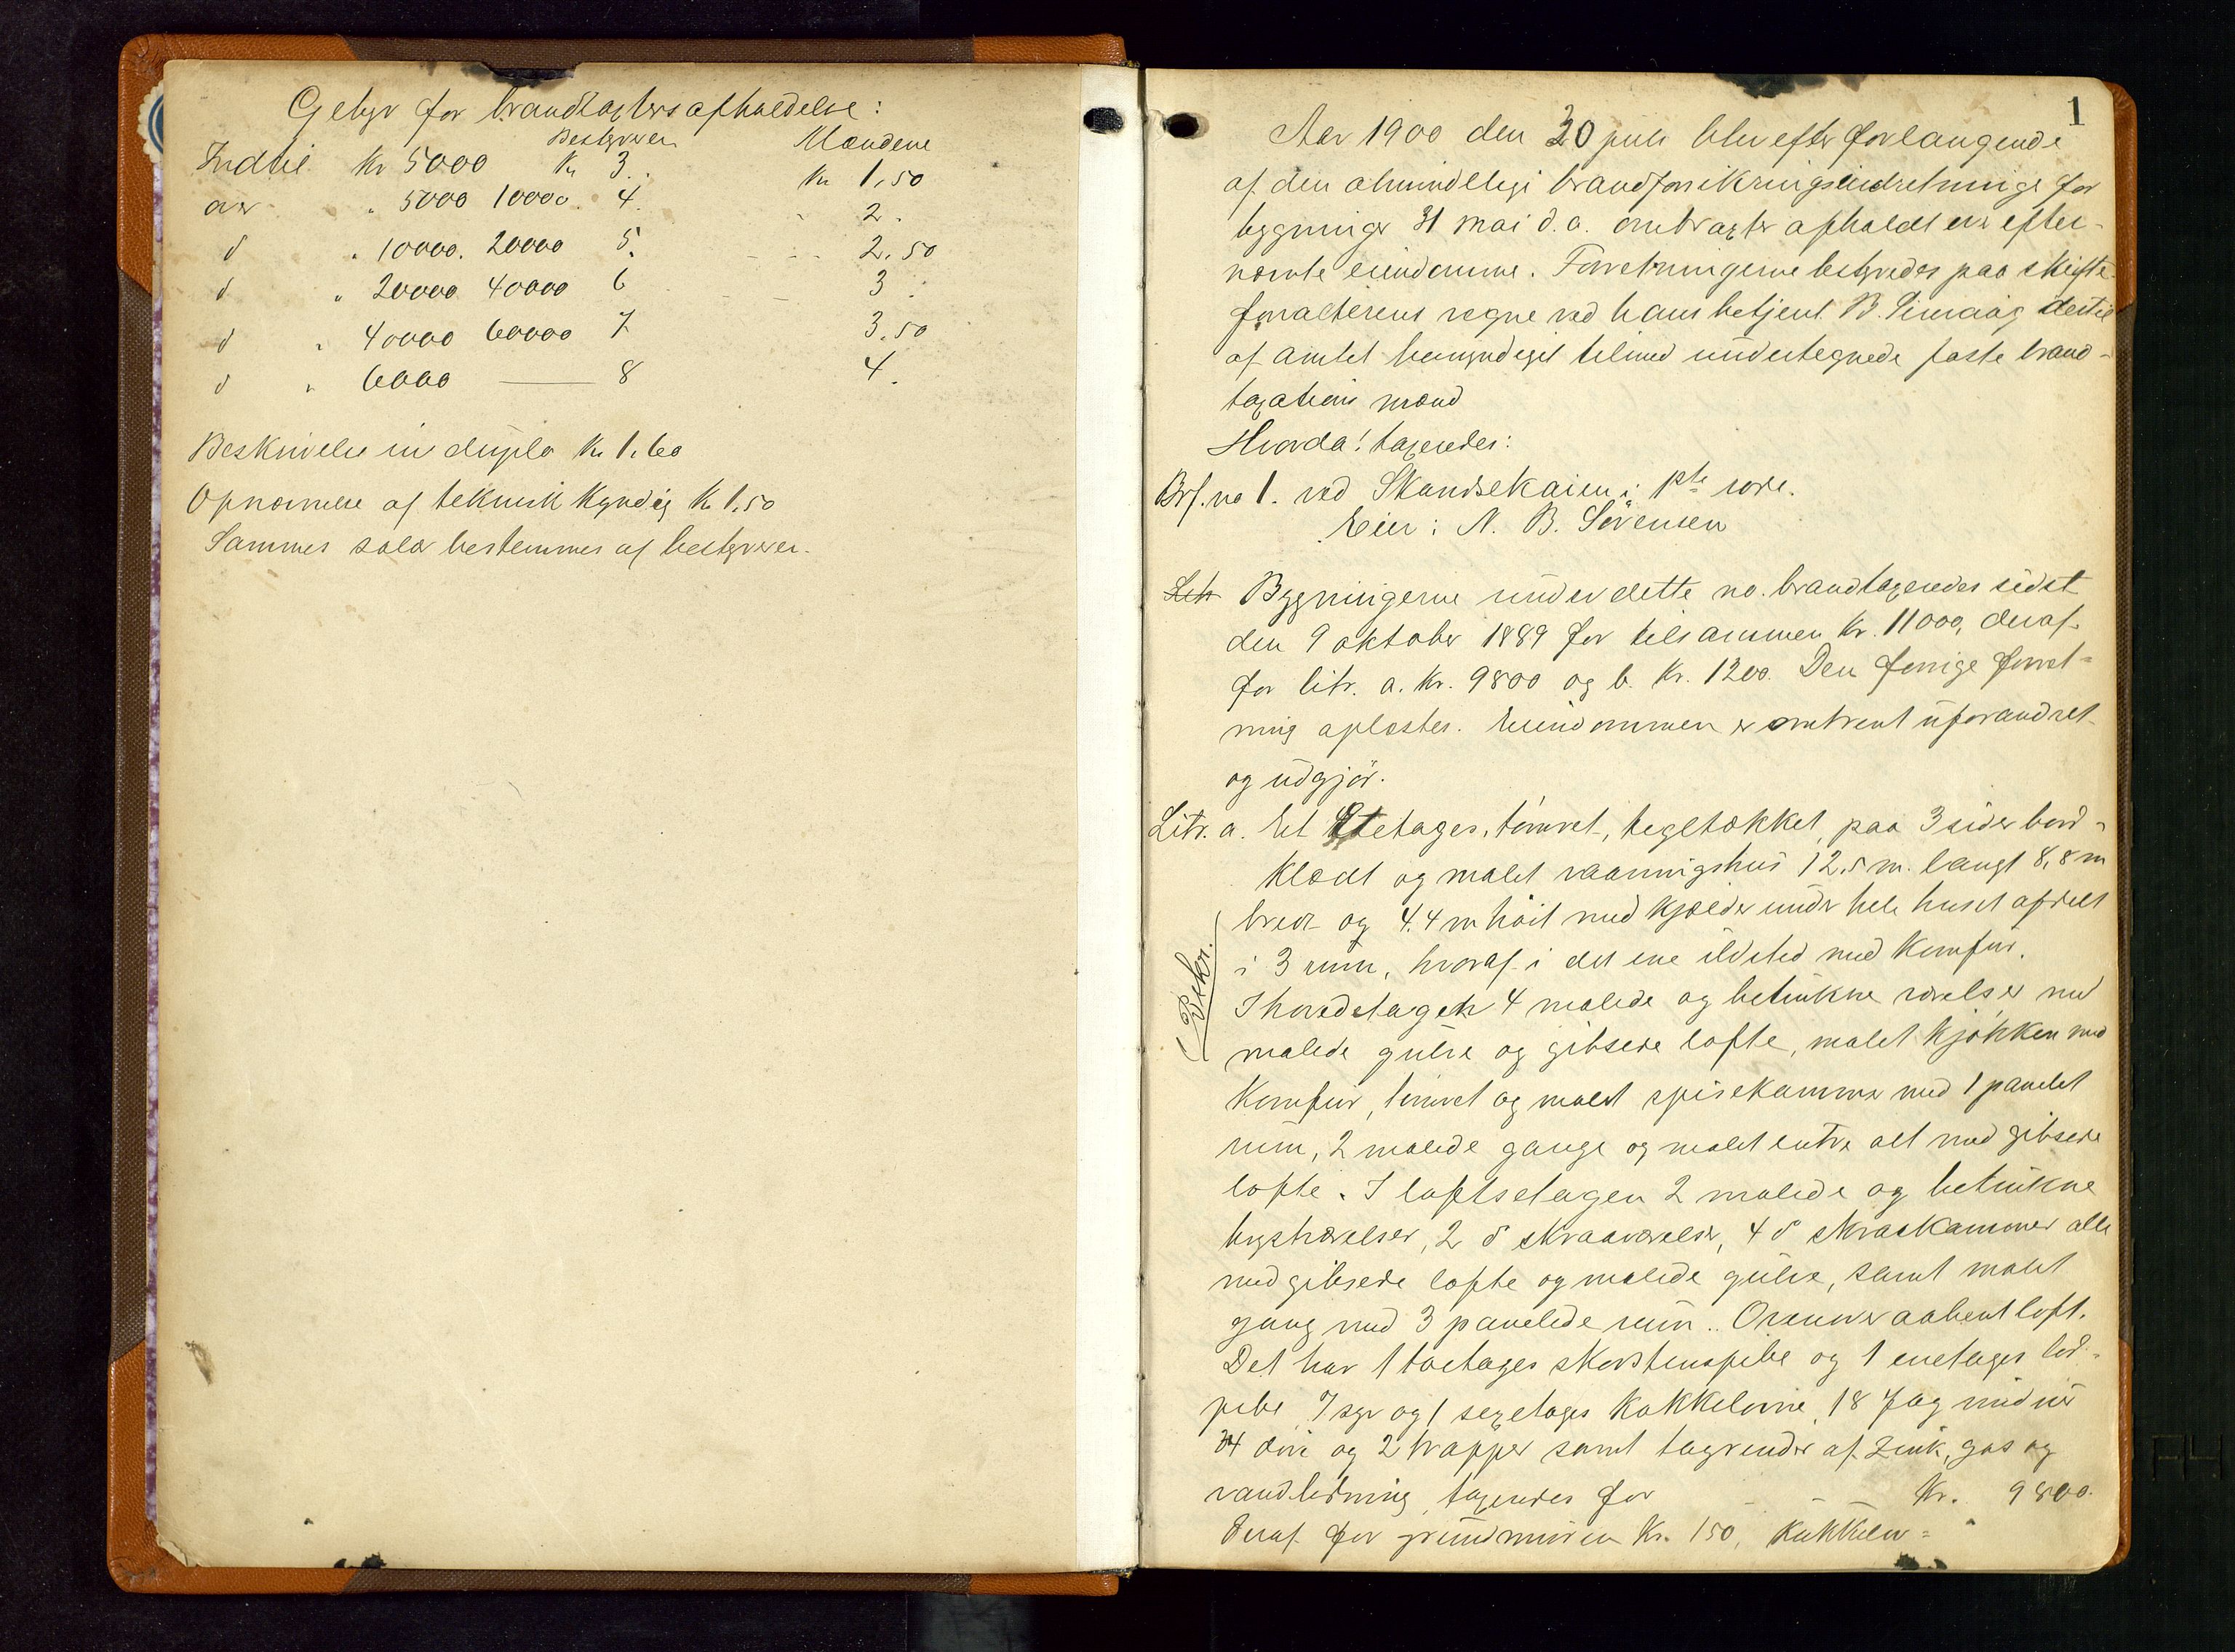 Gebyr for brandtaxters afholdelse:
Bestyreren Mændene
Indtil Kr 5000 Kr 3. Kr 1,50
over " 5000 10000. 4. " 2.
d " 10000. 20000 5. - - - 2,50
d " 20000 40000 6 - - 3.
d " 40000 60000 7 3.50
d " 6000 — 8 4.
Beskrivelse in duplo Kr 1.60
Opnævnelse af teknisk kyndig Kr 1,50
Sammes salær bestemmes af bestyreren.
1
Aar 1900 den 30 juli blev efter forlangende
af den almindelige brandforsikringsindretninge for
bygninger 31 mai d.a. omtaxter afholdt over efter-
nævnte eiendomme. Forretningerne bestyredes paa skifte
forvalterens vegne ved hans betjent B. dertil
af amtet bemyndiget tilmed undertegnede faste brand-
taxations mænd
Hvorda! taxeredes:
Brf. no 1. ved Skandsekaien i 1ste rode.
Eier: N. B. Sørensen
Litr Bygningerne under dette no. brandtaxeredes sidst
den 9 oktober 1889 for tilsammen kr. 11000, deraf
for litr. a. kr. 9800 og b. kr. 1200. Den forrige forret-
ning oplæstes. Eiendommen er omtrent uforandret
og udgjør.
Litr. a. Et etages, tømret, tegltækket, paa 3 sider bord-
klædt og malet vaaningshus 12,5 m. langt 8,8 m
bredt og 4.4 m høit med kjælder under hele huset afdelt
i 3 rum, hvoraf i det ene ildsted med komfur.
(Bekr.
I hovedetagen 4 malede og betrukne værelser med
malede gulve og gibsede lofte, malet kjøkken med
komfur, tømret og malet spisekammer med 1 panelet
rum, 2 malede gange og malet entre alt med gibsede
lofte. I loftsetagen 2 malede og betrukne
kvistværelser, 2 d skraaværelser, 4 d skraakammer alle
med gibsede lofte og malede gulve, samt malet
gang med 3 panelede rum. Ovenover aabent loft.
Det har 1 toetages skorstenspibe og 1 enetages lod-
pibe 7 og 1 sexetages kakkelovne, 18 fag vinduer
24 døre og 2 trapper samt tagrender af zink, gas og
vandledning, taxeredes for Kr. 9800.
Deraf for grundmuren Kr. 150, kakkelov=